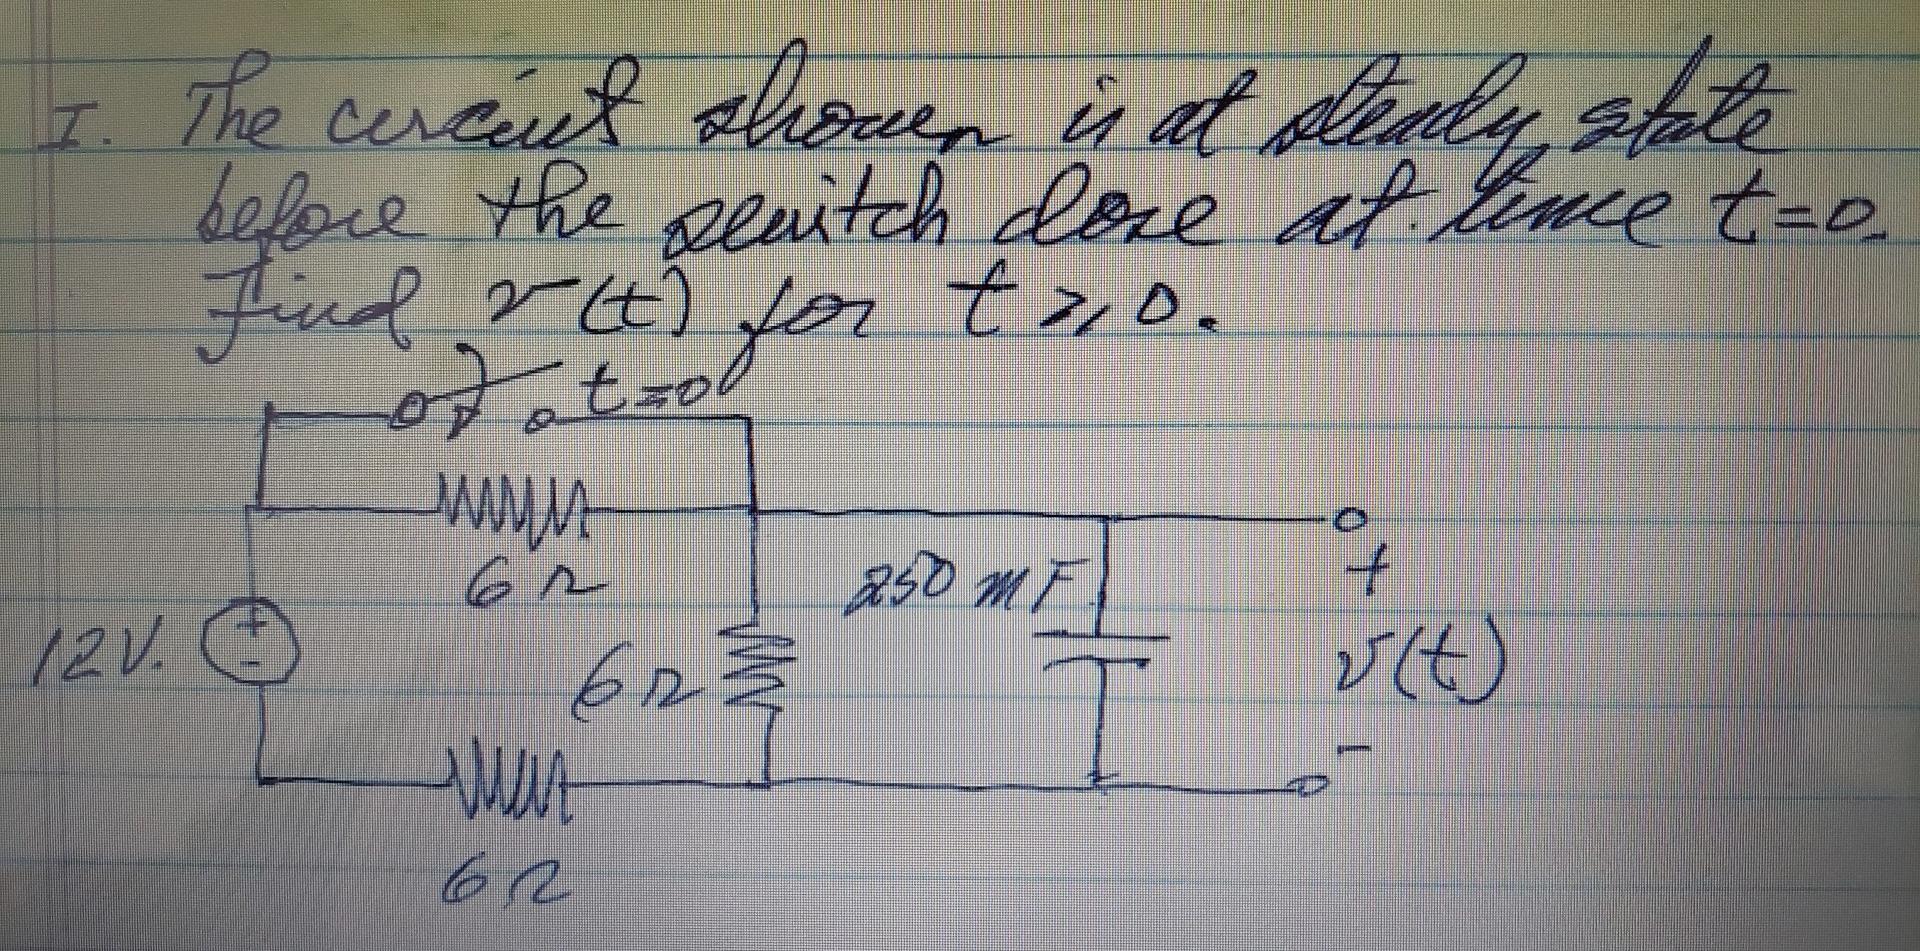 I. The circuit shown is at steady state
before the switch close at time t=0.
find v(t) for t ≥ 0.
t=0
6Ω
250 mF
+
12V.
+
-
6Ω
v(t)
-
6Ω